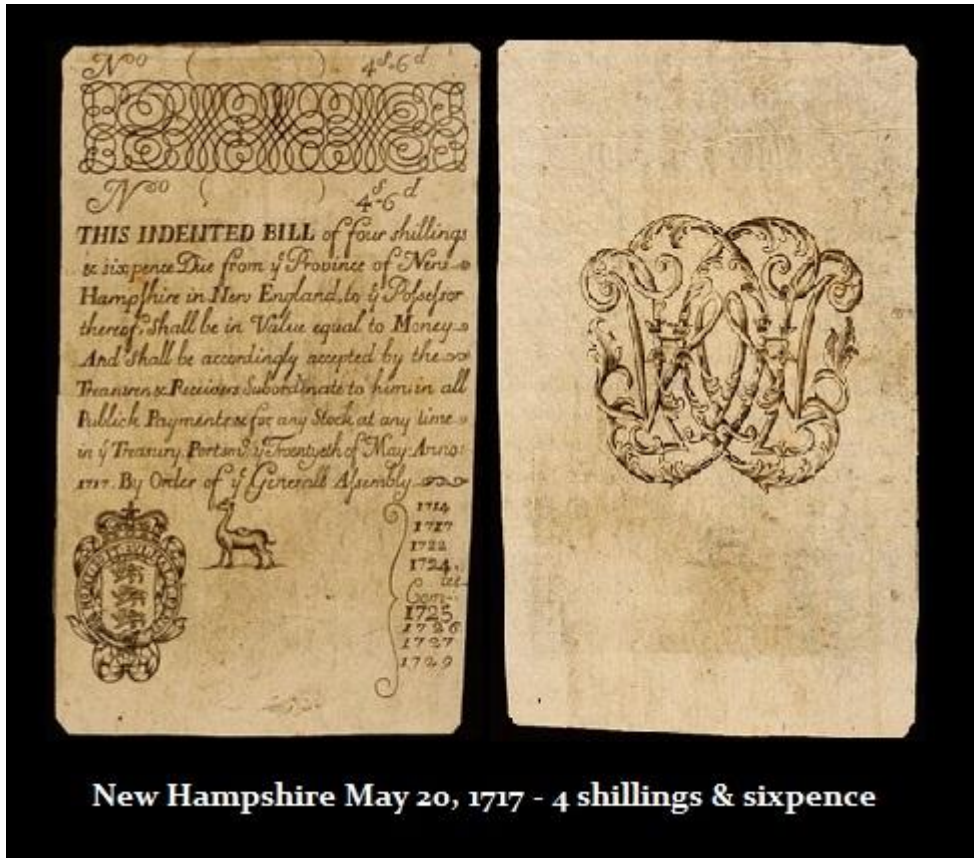 Noo ( ) 4s-6d
Noo ( ) 4s-6d
THIS INDENTED BILL of four shillings
& sixpence Due from ye Province of New
Hampshire in New England to ye Possessor
thereof, Shall be in Value equal to Money
And Shall be accordingly accepted by the
Treasurer & Receivers Subordinate to him in all
Publick Payments & for any Stock at any time
in ye Treasury. Portsmo ye Twentyeth of May Anno:
1717. By Order of ye Generall Assembly
1714
1717
1722
1724.
Com-tee
1725
1726
1727
1729
New Hampshire May 20, 1717 - 4 shillings & sixpence